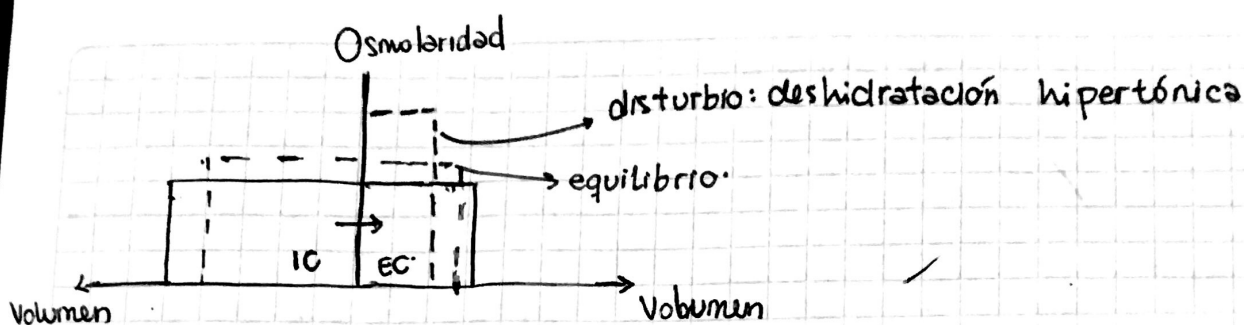 Osmolaridad
disturbio: deshidratación hipertónica
equilibrio.
IC
EC.
Volumen
Volumen